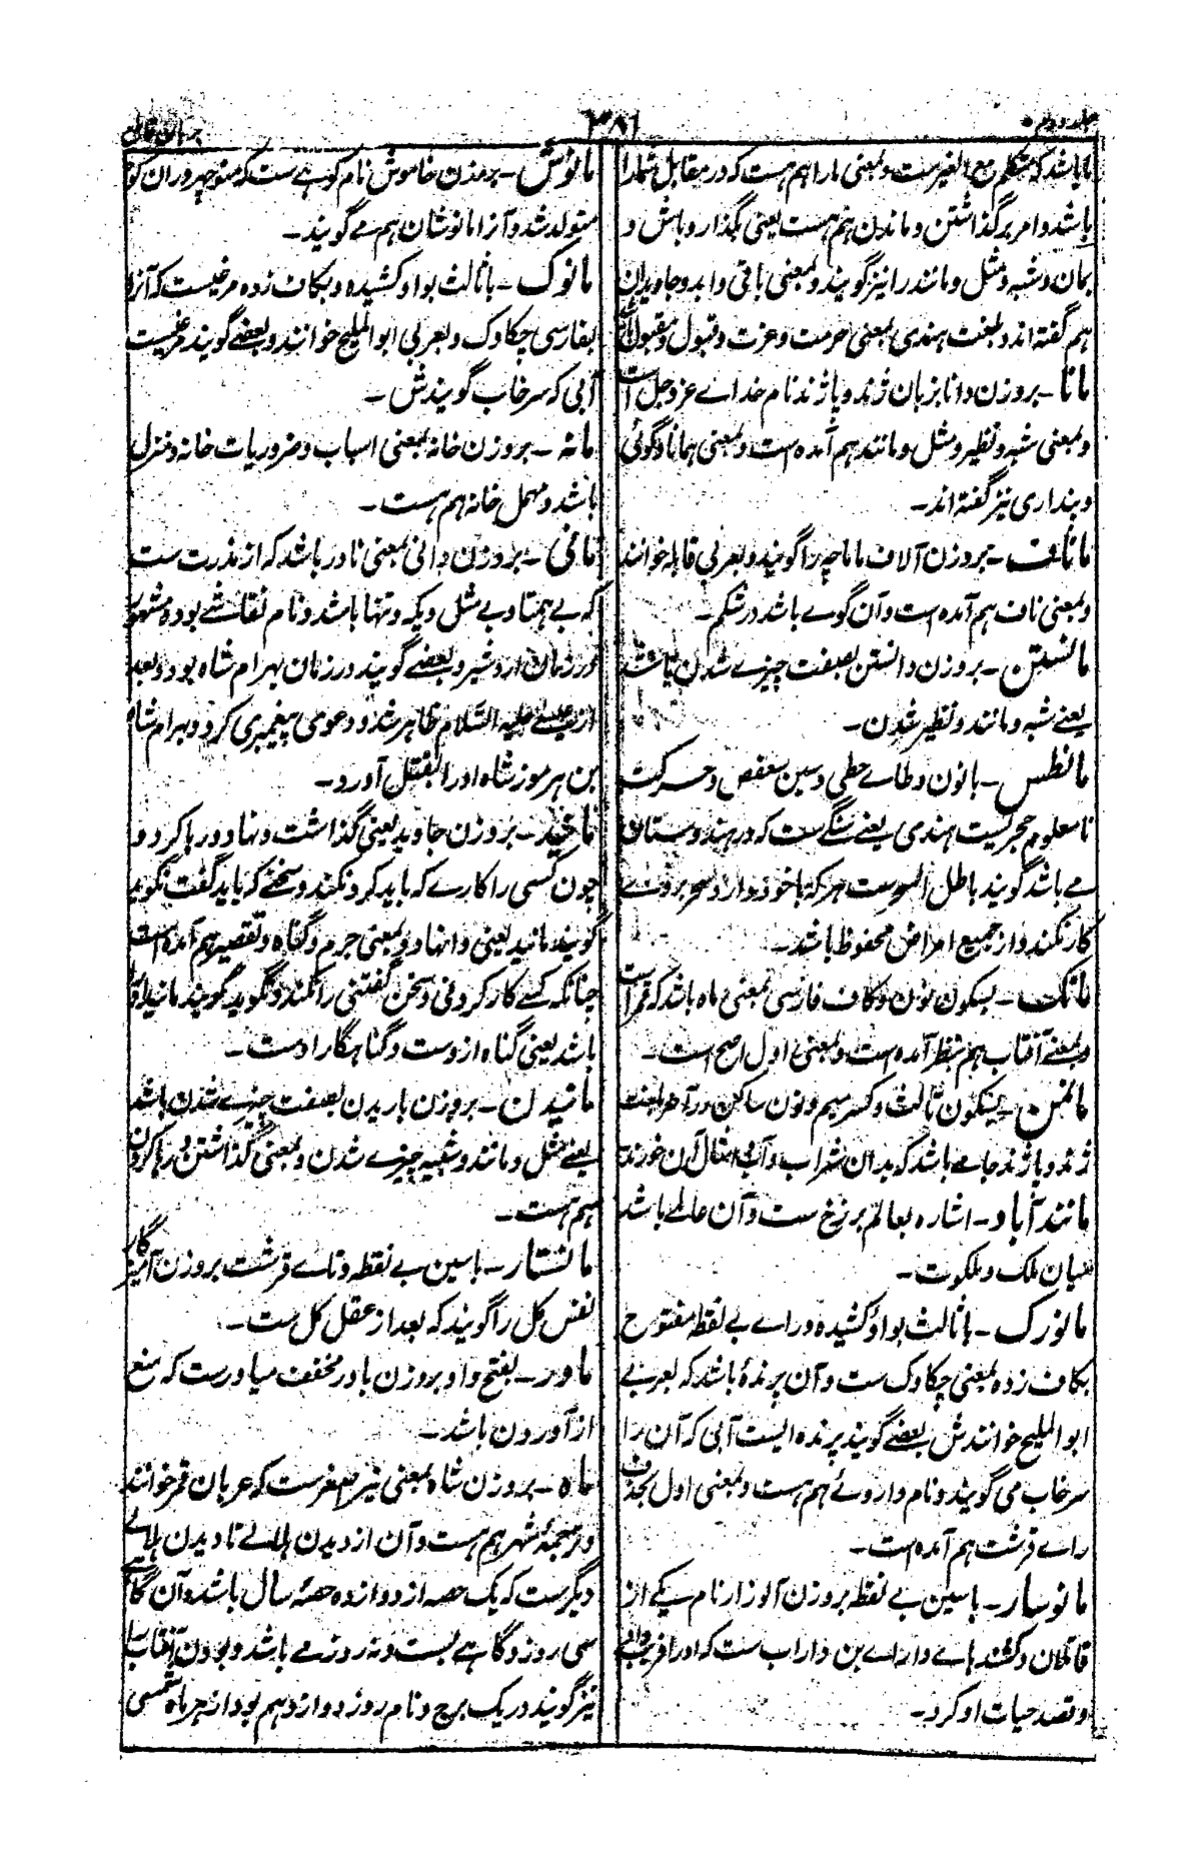 جلد دوم
۳۸۶
برہان قاطع
ما باشد که متکلم مع الغیر ست و بمعنی مارا هم هست که در مقابل شمارا
باشد و امر بر گذاشتن و ماندن هم هست یعنی بگذار و باش و
بمان و شبه و مثل و مانند را نیز گویند و بمعنی باقی و ابد و جاویدان
هم گفته اند و بلغت هندی بمعنی حرمت و عزت و قبول و مقبول
مانا ـ بر وزن دانا بزبان ژند و پاژند نام خداے عز و جل است
و بمعنی شبه و نظیر و مثل و مانند هم آمده است و بمعنی همانا و گوئی
و پنداری نیز گفته اند ـ
ماناف ـ بر وزن آلاف ماماچه را گویند و بعربی قابله خوانند
و بمعنی ناف هم آمده است و آن گوے باشد در شکم ـ
مانستن ـ بر وزن دانستن بصفت چیزے شدن باشد
یعنے شبه و مانند و نظیر شدن ـ
مانطس ـ با نون و طاے حطی و سین سعفص و حرکت
نا معلوم حجریست هندی یعنے سنگے ست که در هندوستان
مے باشد گویند باطل السحر ست هر که با خود دارد سحر بر وے
کار نکند و از جمیع امراض محفوظ باشد ـ
مانک ـ بسکون نون و کاف فارسی بمعنی ماه باشد که قمر است
و بمعنے آفتاب هم بنظر آمده است و بمعنی اول اصح است ـ
مانمن ـ بسکون ثالث و کسر میم و نون ساکن در آخر بلغت
ژند و پاژند جامے باشد که بدان شراب و آب و امثال آن خورند
مانند آباد ـ اشاره بعالم برزخ ست و آن عالمے باشد
میان ملک و ملکوت ـ
مانورک ـ با ثالث بواو کشیده و راے بے نقطه مفتوح
بکاف زده بمعنی چکاوک ست و آن پرندۀ باشد که بعربی
ابو الملیح خوانندش بعضے گویند پرنده ایست آبی که آن را
سرخاب می گویند و نام داروئے هم هست و بمعنی اول بحذف
راے قرشت هم آمده است ـ
مانوسار ـ با سین بے نقطه بر وزن آلوزار نام یکے از
قاتلان و کشندهاے داراے بن داراب ست که او را فریب
و قصد حیات او کرد ـ
مانوش ـ بر وزن خاموش نام کوهے ست که منوچهر در آن کوه
متولد شد و آنرا مانوشان هم مے گویند ـ
مانوک ـ با ثالث بواو کشیده و بکاف زده مرغیست که آنرا
بفارسی چکاوک و بعربی ابو الملیح خوانند و بعضے گویند مرغیست
آبی که سرخاب گویندش ـ
مانه ـ بر وزن خانه بمعنی اسباب و ضروریات خانه و منزل
باشد و مهمل خانه هم هست ـ
مانی ـ بر وزن دانی بمعنی نادر باشد که از ندرت ست
که بے همتا و بے مثل و یکه و تنها باشد و نام نقاشے بوده مشهور
در زمان اردشیر و بعضے گویند در زمان بهرام شاه بود و بعد
از عیسے علیه السلام ظاهر شد و دعوی پیغمبری کرد و بهرام شاه
بن هرمز شاه او را بقتل آورد ـ
مانید ـ بر وزن جاوید یعنی گذاشت و نهاد و رها کرد و
چون کسی را کارے که باید کرد نکند و سخنے که باید گفت نگوید
گویند مانید یعنی وانهاد و بمعنی جرم و گناه و تقصیر هم آمده است
چنانکه کسے کار کردنی و سخن گفتنی را نکند و نگوید گویند مانید او
باشد یعنی گناه از وست و گناهگار اوست ـ
مانیدن ـ بر وزن باریدن بصفت چیزے شدن باشد
یعنے مثل و مانند و شبیه چیزے شدن و بمعنی گذاشتن و رها کردن
هم هست ـ
مانستار ـ با سین بے نقطه و تاے قرشت بر وزن آمیزگار
نفس کل را گویند که بعد از عقل کل ست ـ
ماور ـ بفتح واو بر وزن باور مخفف میاور ست که منع
از آوردن باشد ـ
ماه ـ بر وزن شاه بمعنی نیر اصغر ست که عربان قمر خوانند
و ترجمۀ شهر هم هست و آن از دیدن هلالے تا دیدن هلالے
دیگر ست که یک حصه از دوازده حصۀ سال باشد و آن گاهے
سی روز و گاهے بست و نه روز مے باشد و بودن آفتاب را
نیز گویند در یک برج و نام روز دوازدهم بود از هر ماه شمسی